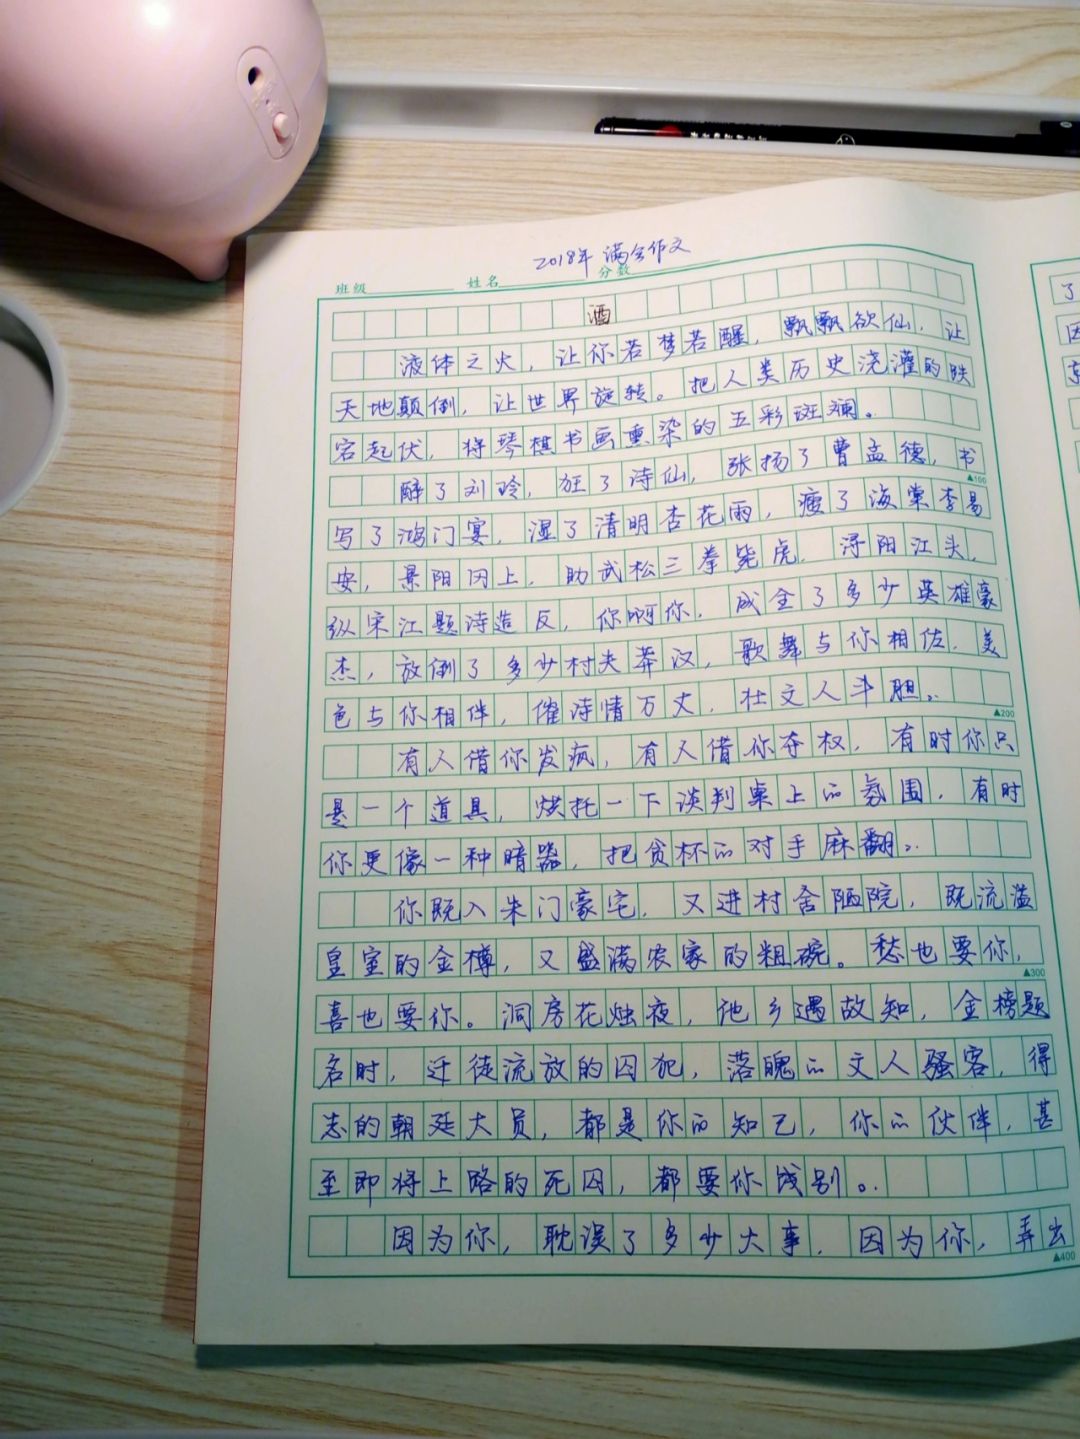 2018年 满分作文
班级 姓名 分数
酒
液体之火，让你若梦若醒，飘飘欲仙，让
天地颠倒，让世界旋转。把人类历史浇灌的跌
宕起伏，将琴棋书画熏染的五彩斑斓。
醉了刘玲，狂了诗仙，张扬了曹孟德，书
▲100
写了鸿门宴，湿了清明杏花雨，瘦了海棠李易
安，景阳冈上，助武松三拳毙虎，浔阳江头，
纵宋江题诗造反，你啊你，成全了多少英雄豪
杰，放倒了多少村夫莽汉，歌舞与你相佐，美
色与你相伴，催诗情万丈，壮文人斗胆。
▲200
有人借你发疯，有人借你夺权，有时你只
是一个道具，烘托一下谈判桌上的氛围，有时
你更像一种暗器，把贪杯的对手麻翻。
你既入朱门豪宅，又进村舍陋院，既流溢
皇室的金樽，又盛满农家的粗碗。愁也要你，
▲300
喜也要你。洞房花烛夜，他乡遇故知，金榜题
名时，迁徒流放的囚犯，落魄的文人骚客，得
志的朝廷大员，都是你的知己，你的伙伴，甚
至即将上路的死囚，都要你饯别。
因为你，耽误了多少大事，因为你，弄出
▲400
了